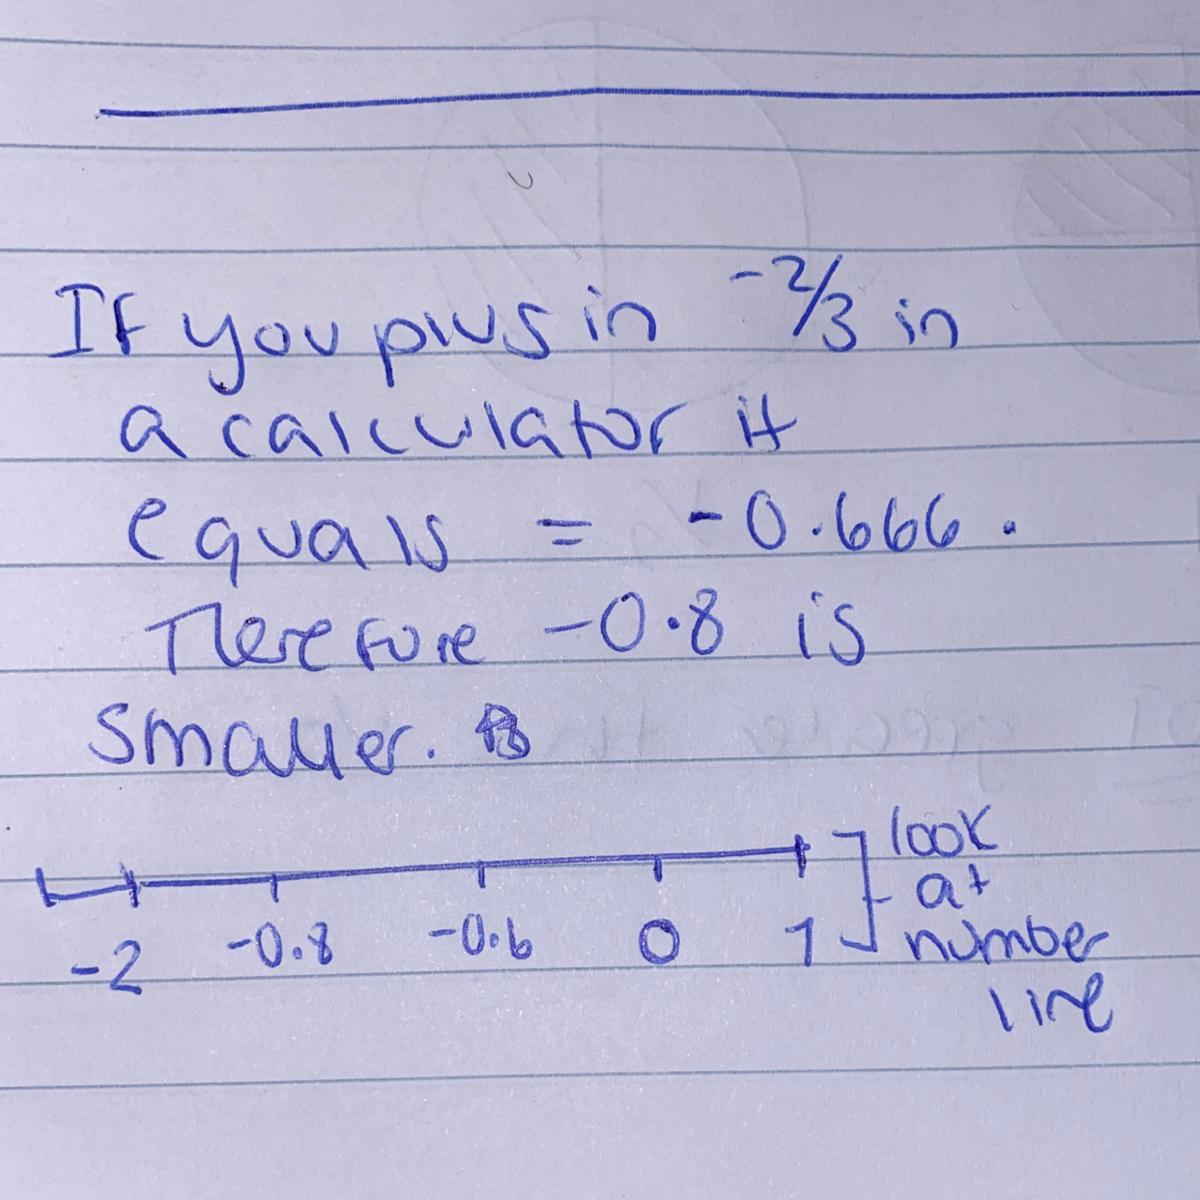 If you plus in -2/3 in
a calculator it
equals = -0.666.
Therefore -0.8 is
smaller.
-2 -0.8 -0.6 0 1
look
at
number
line